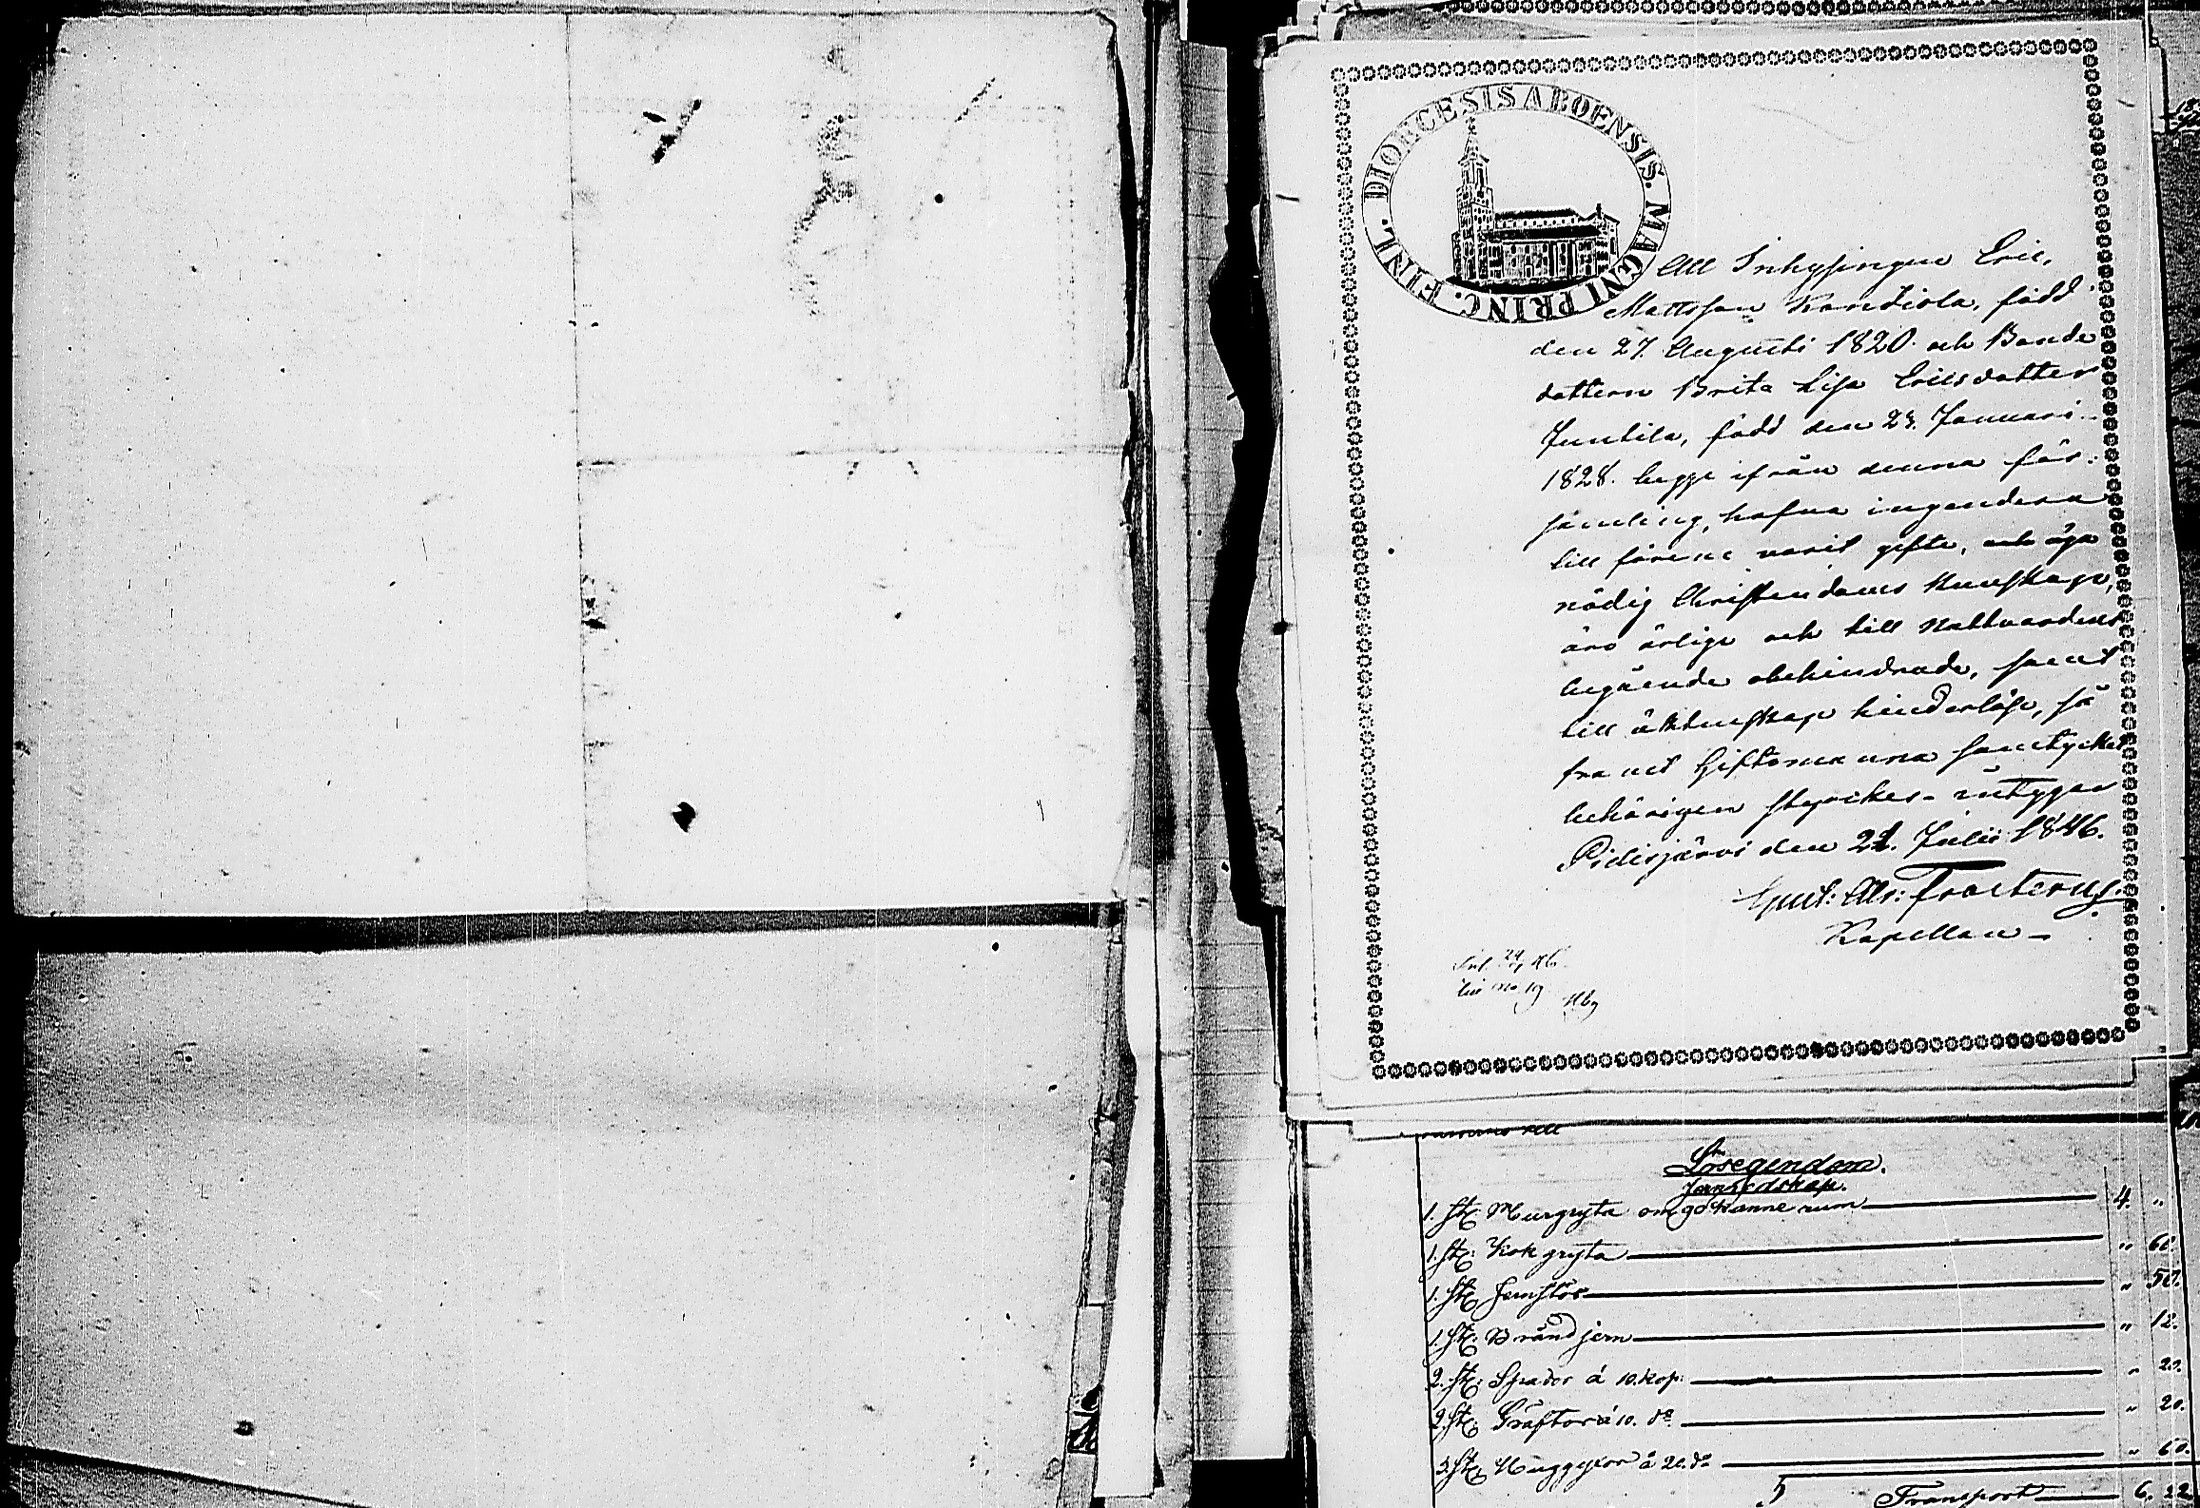 DIOECESIS ABOENSIS. MAGNI PRINC. FINL.
Att Inhysingen Eric
Mattsson Kandiola, född
den 27. Augusti 1820. och Bonde
dottern Brita Lisa Ericsdotter
Juntila, född den 23. Januari
1828. begge ifrån denna för-
samling, hafva ingendera
till förene varit gifte, och äga
nödig Christendoms kunskap,
äro ärlige och till Nattvardens
begående obehindrade, samt
till äktenskap hinderlöse, så
framt Giftomanna samtycket
behörigen styrkes - intygar
Pidisjärvi den 21. Julii 1846.
Gust: Alr: Frosterus.
Kapellan -
24/7 46.
no 19 Hbg
Lösegendom.
Jernredskap.
1. st. Murgryta om 90 kanne rum 4. "
1. st. Kok gryta " 60.
1. st. Jernstör " 50.
1. st. Brändjern " 12.
2. st. Spador á 10. kop: " 20.
2. st. Gräftor á 10. do " 20.
3. st. Huggyxor á 20. do " 60.
Transport 6. 22